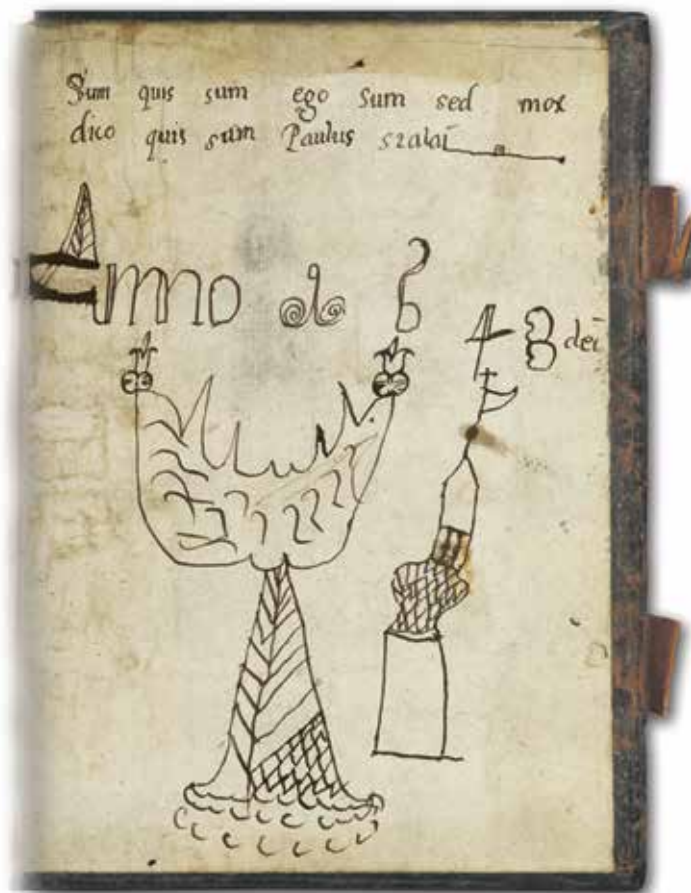 Sum quis sum ego sum sed mox
dico quis sum Paulus szalai
Anno do
48 dei